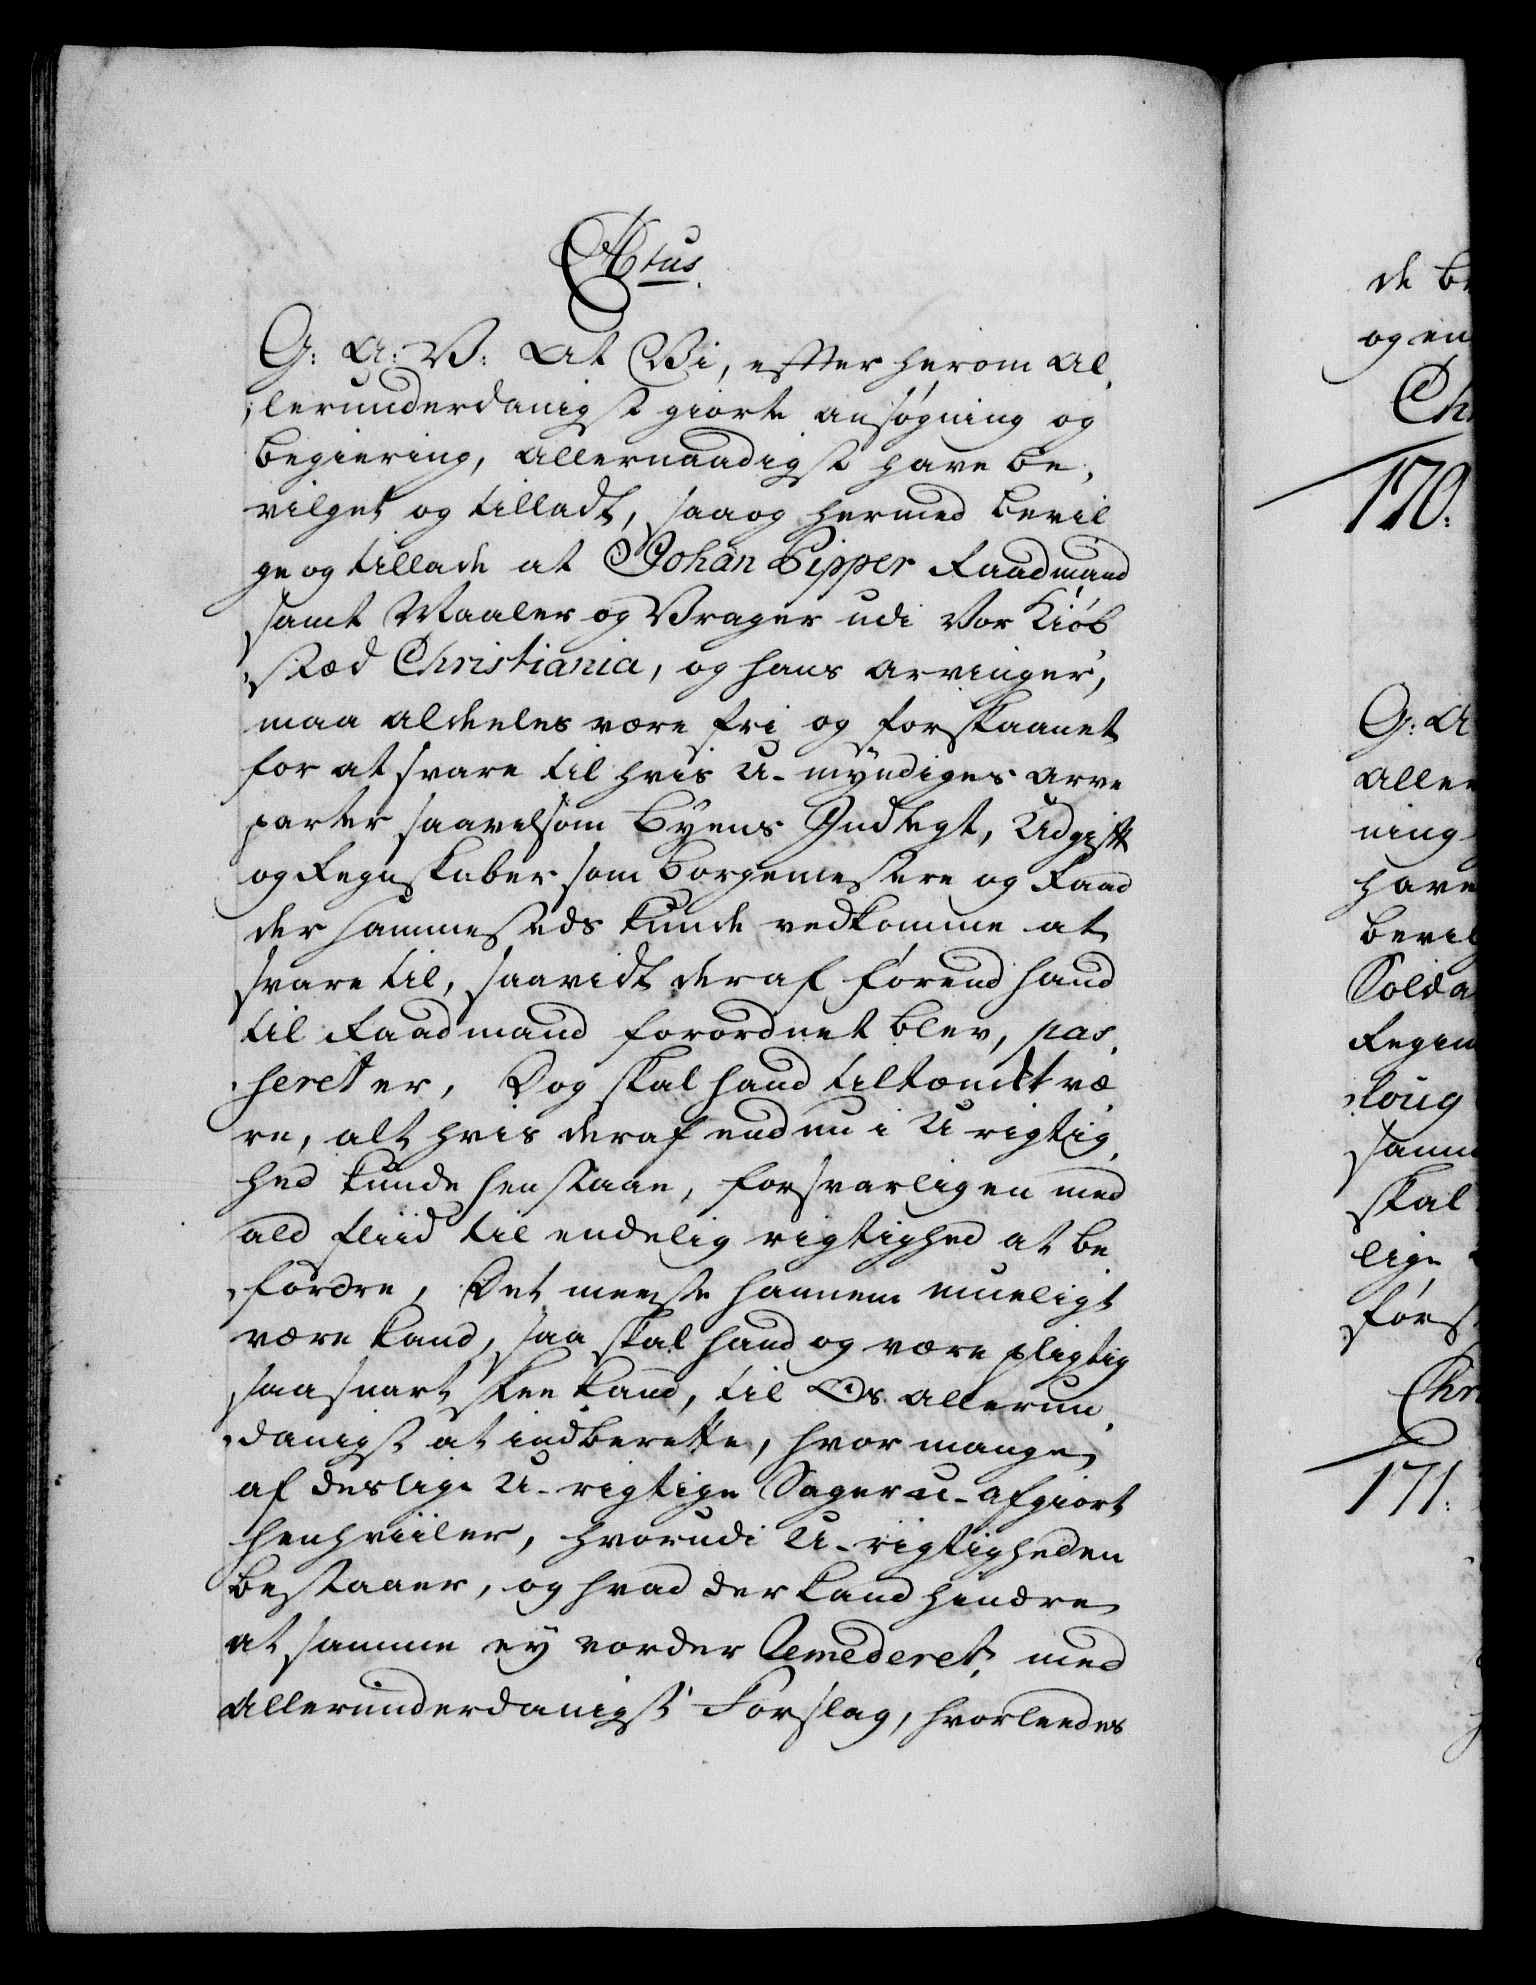 Ctus.
G: A: V: At Vi, effter herom al„
„lerunderdanigst giorte ansøgning og
begiering, allernaadigst have be„
vilget og tilladt, saa og hermed bevil
ge og tillade at Johan Pipper Raadmand
samt Maaler og Vrager udi Vor Kiøb
„stæd Christiania, og hans arvinger,
maa aldeeles være fri og forskaanet
for at svare til hvis U-myndiges arve
parter saavelsom Byens Indtegt, Udgift
og Regnskaber som Borgemestere og Raad
der sammesteds kunde vedkomme at
svare til, saavidt deraf førend hand
til Raadmand forordnet blev, pas„
„seret er, Dog skal hand tiltænckt væ„
re, alt hvis deraf endnu i U rigtig„
hed kunde henstaae, forsvarligen med
ald fliid til endelig rigtighed at be
„fordre, Det meeste hannem mueligt
være kand, saa skal hand og være pligtig
saasnart skee kand, til Os allerun„
„danigst at indberette, hvor mange
af deslige U-rigtige Sager u-afgiort
henhviiler, hvorudi U-rigtigheden
bestaaer, og hvad der kand hindre
at samme ey vorder Remederet, med
allerunderdanigst Forslag, hvorleedes
de be
og en
Chr
170.
G: A
aller
ning
have
bevil
Solda
Regim
„loug
samm
skal
lige
førs
Chr
171.